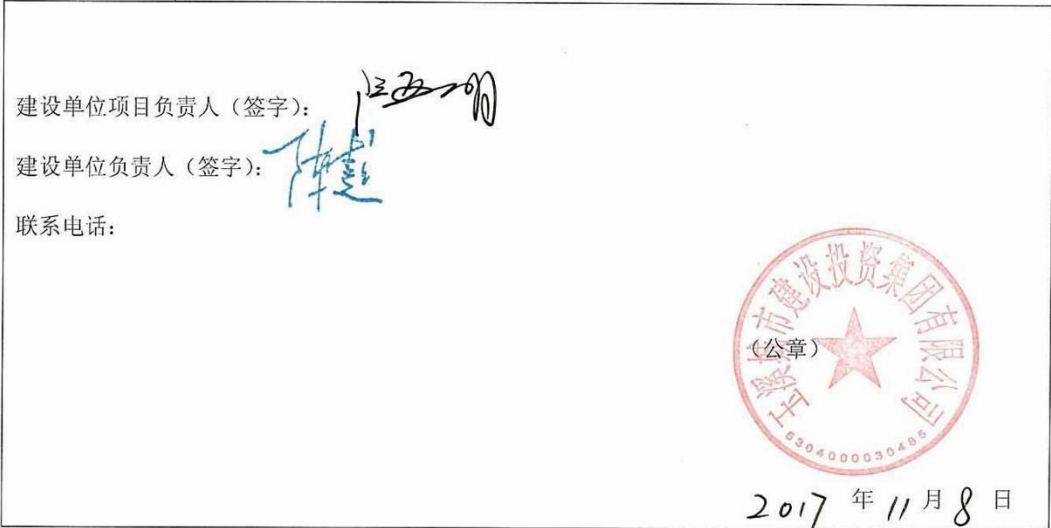 建设单位项目负责人（签字）：
建设单位负责人（签字）：陈超
联系电话：
玉溪城市建设投资集团有限公司
（公章）
5304000030485
2017 年 11 月 8 日